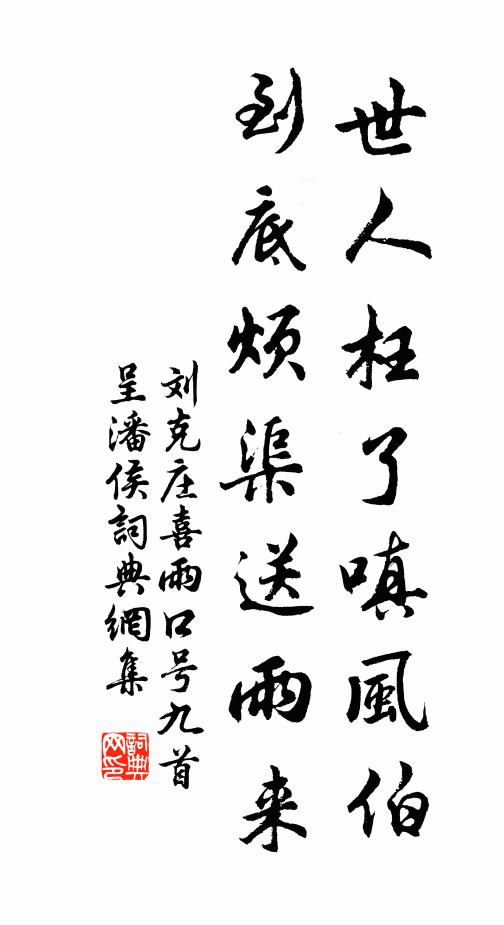 世人枉了嗔風伯
到底煩渠送雨来
刘克庄喜雨口号九首
呈潘侯詞典網集
詞典
网印